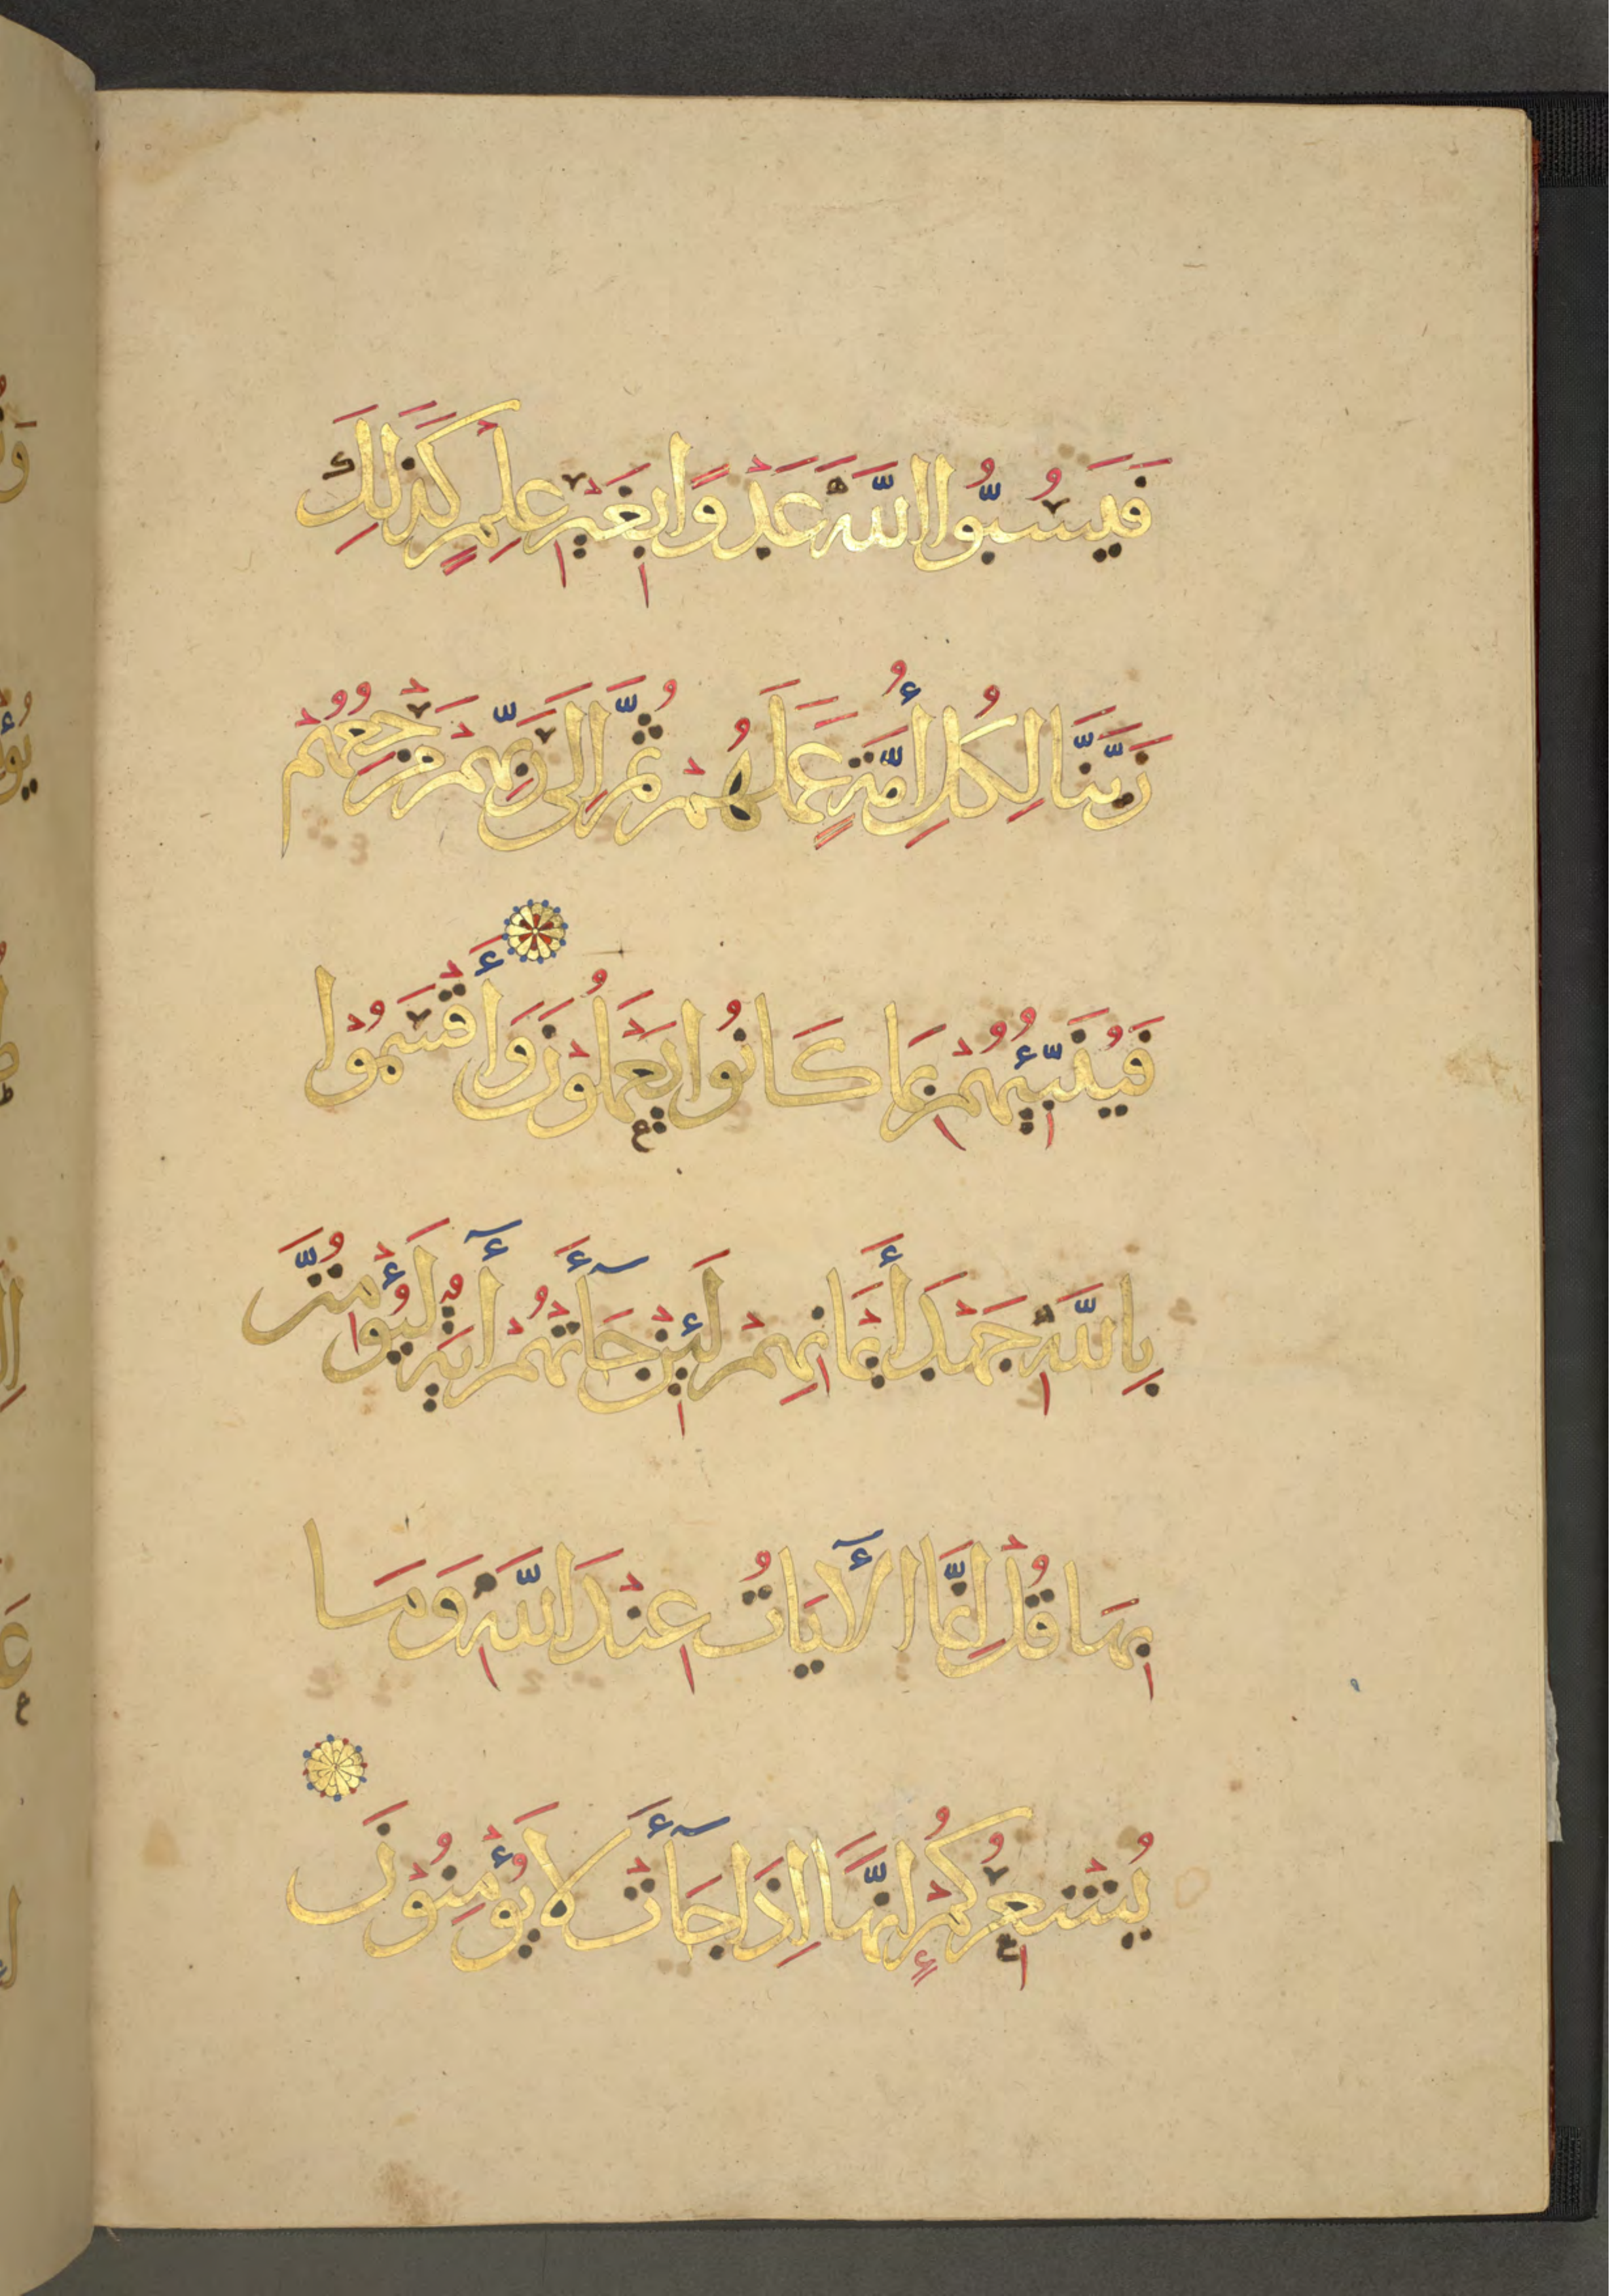 فَيَسُبُّوا اللَّهَ عَدْوًا بِغَيْرِ عِلْمٍ كَذَلِكَ
زَيَّنَّا لِكُلِّ أُمَّةٍ عَمَلَهُمْ ثُمَّ إِلَى رَبِّهِمْ مَرْجِعُهُمْ
فَيُنَبِّئُهُمْ بِمَا كَانُوا يَعْمَلُونَ وَأَقْسَمُوا
بِاللَّهِ جَهْدَ أَيْمَانِهِمْ لَئِنْ جَآءَتْهُمْ آيَةٌ لَيُؤْمِنُنَّ
بِهَا قُلْ إِنَّمَا الْآيَاتُ عِنْدَ اللَّهِ وَمَا
يُشْعِرُكُمْ إِنَّهَا إِذَا جَآءَتْ لَا يُؤْمِنُونَ